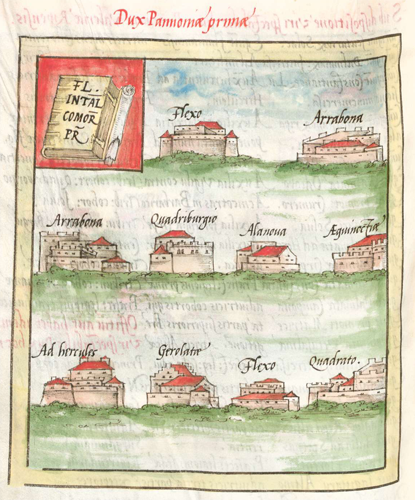 Dux Pannoniæ primæ
FL.
INTAL
COMOR
PR.
Flexo
Arrabona
Arrabona
Quadriburgio
Alanova
Æquinoctiæ
Ad hercules
Gerolatæ
Flexo
Quadrato.